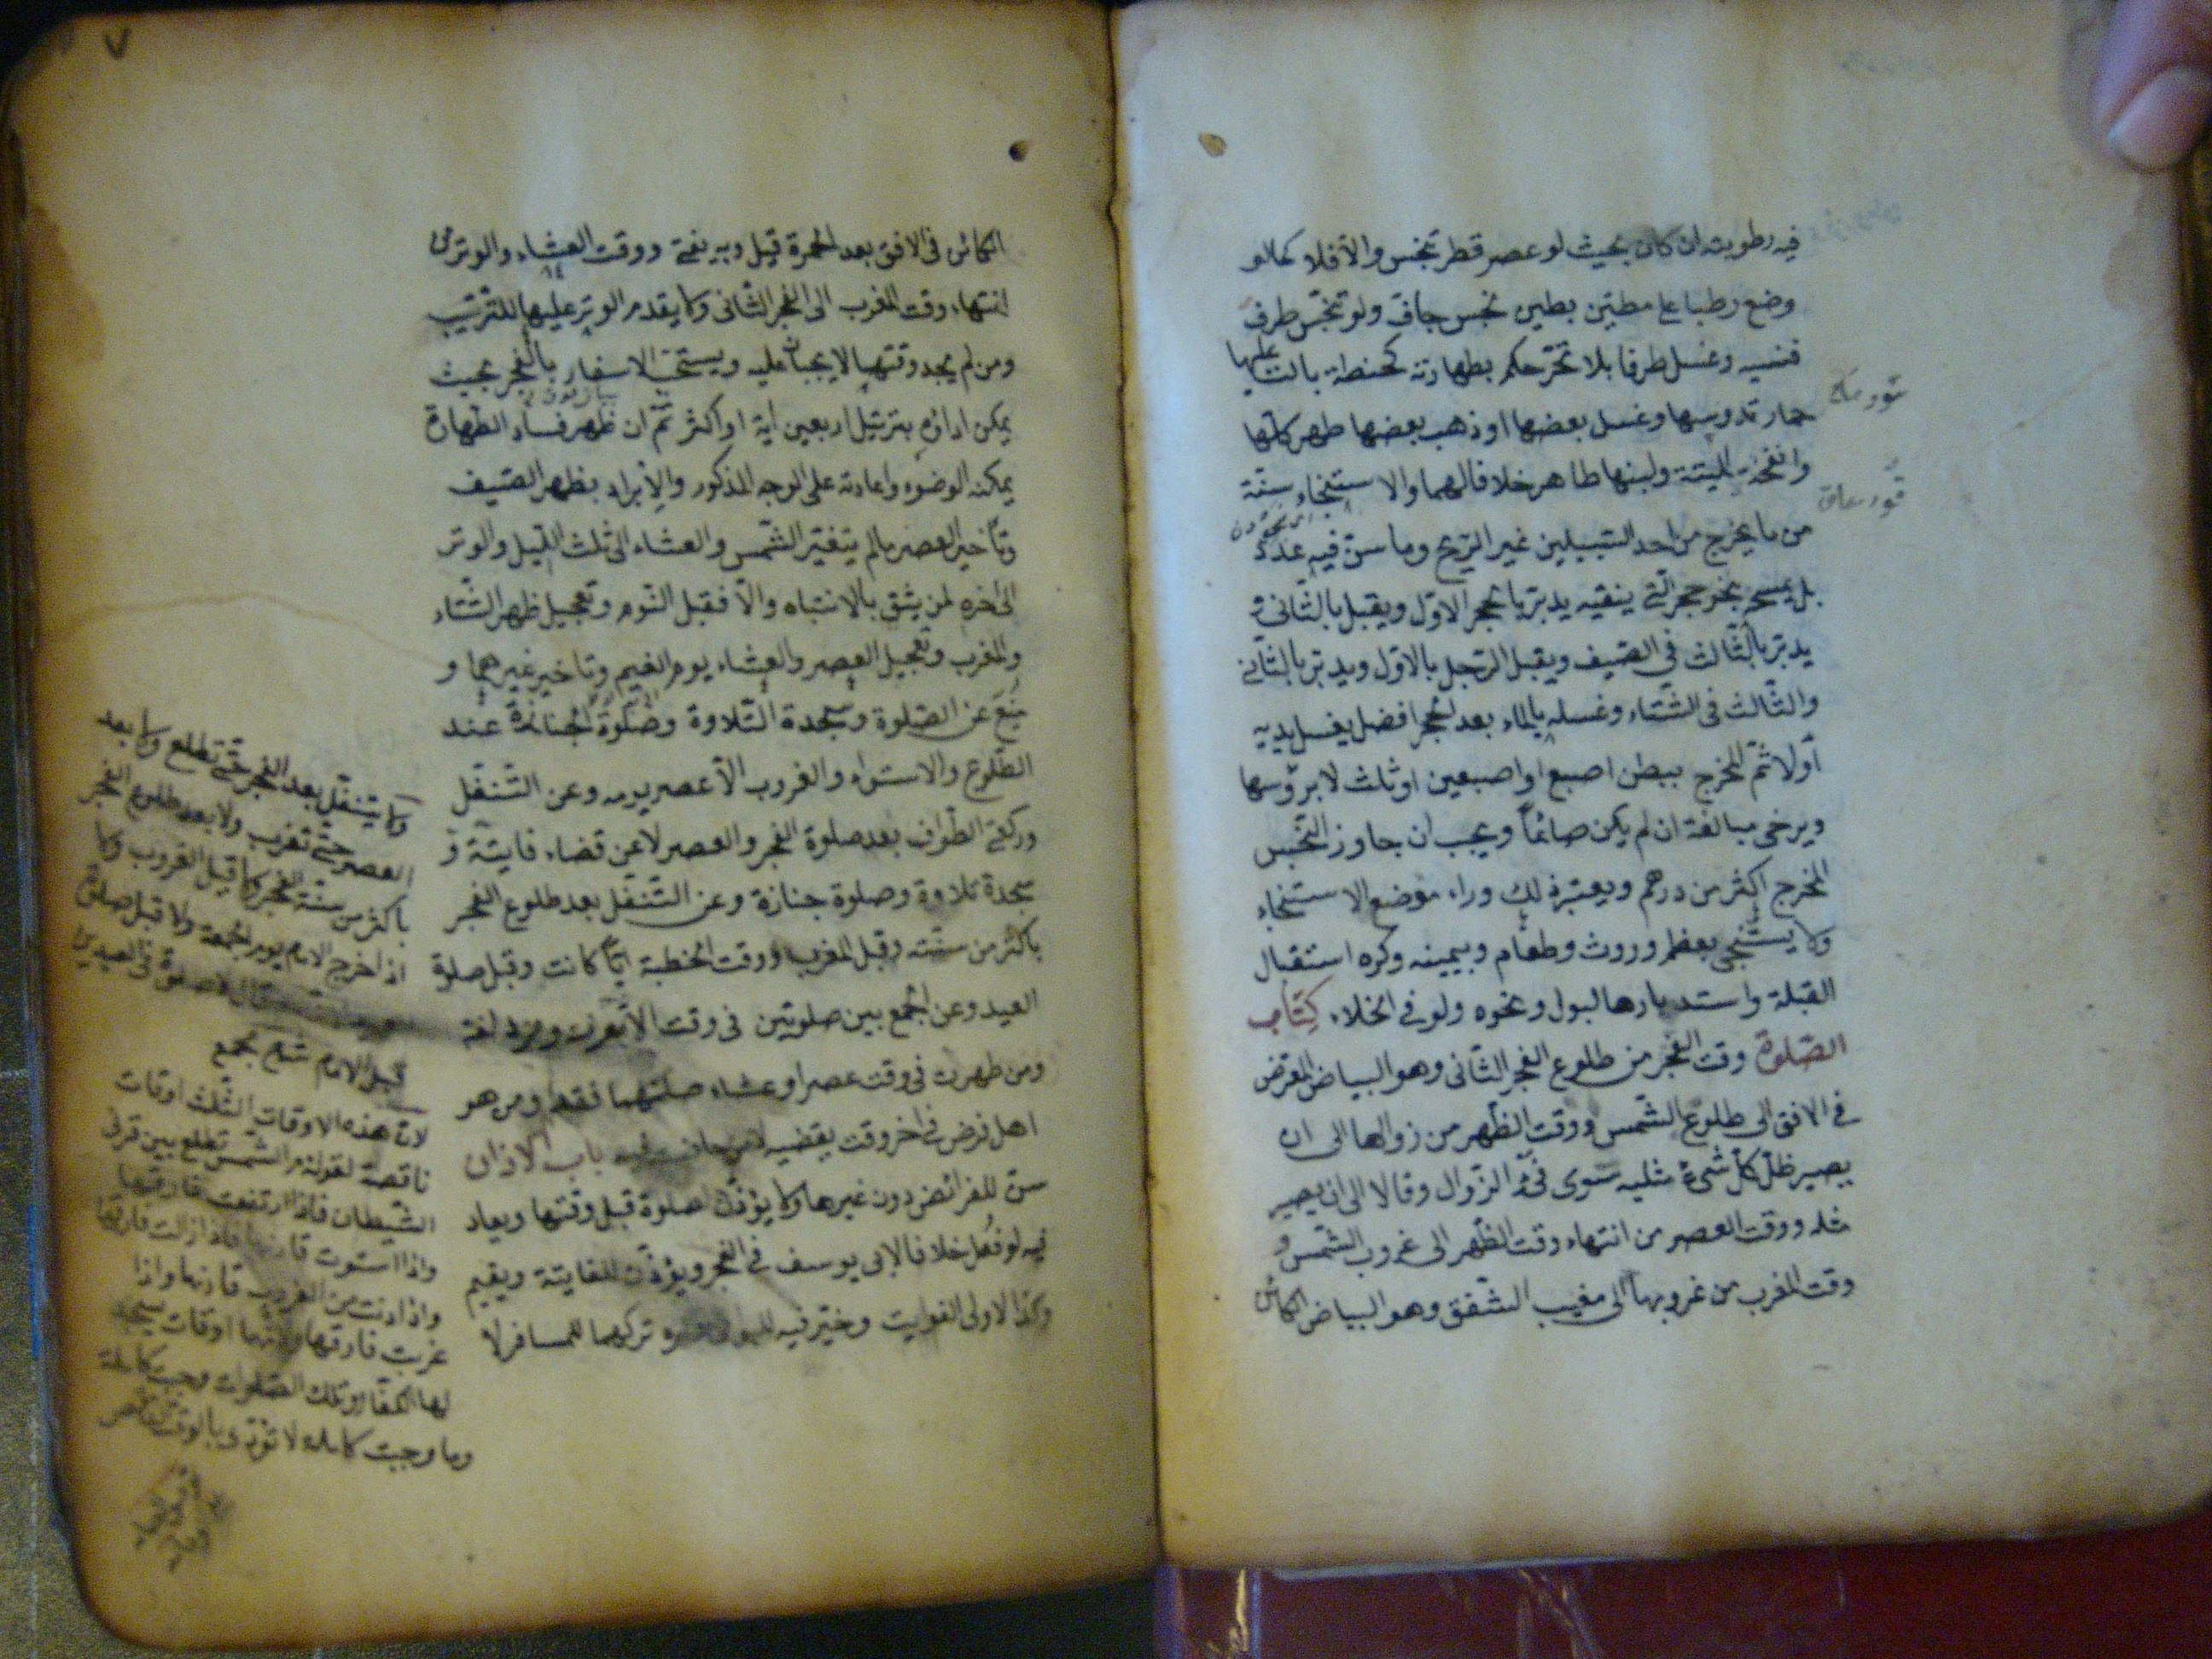 فيه رطوبته ان كان بحيث لو عصر قطر تنجس والا فلا كما لو
وضع رطبا على مطين بطين نجس جاف ولو تنجس طرف
فنسيه وغسل طرفا بلا تحر حكم بطهارته كحنطة بالت عليها
حمار تدوسها وغسل بعضها او ذهب بعضها طهر كلها
وانفحة الميتة ولبنها طاهر خلافا لهما والاستنجاء سنة
من ما يخرج من احد السبيلين غير الريح وما سن فيه عدد
بل يمسح بنحو حجر حتى ينقيه يدبر بالحجر الاول ويقبل بالثاني و
يدبر بالثالث في الصيف ويقبل الرجل بالاول ويدبر بالثاني
والثالث في الشتاء وغسله بالماء بعد الحجر افضل يغسل يديه
اولا ثم المخرج ببطن اصبع او اصبعين او ثلث لا برؤسها
ويرخى مبالغة ان لم يكن صائما ويجب ان جاوز النجس
المخرج اكثر من درهم ويعتبر ذلك وراء موضع الاستنجاء
ولا يستنجى بعظم وروث وطعام وبيمينه وكره استقبال
القبلة واستدبارها لبول ونحوه ولو في الخلاء كتاب
الصلوة وقت الفجر من طلوع الفجر الثاني وهو البياض المعترض
في الافق الى طلوع الشمس ووقت الظهر من زوالها الى ان
يصير ظل كل شئ مثليه سوى فئ الزوال وقالا الى ان يصير
مثله ووقت العصر من انتهاء وقت الظهر الى غروب الشمس و
وقت المغرب من غروبها الى مغيب الشفق وهو البياض الكائن
الكائن في الافق بعد الحمرة قيل وبه يفتى ووقت العشاء والوتر من
انتهاء وقت المغرب الى الفجر الثاني ولا يقدم الوتر عليها للترتيب
ومن لم يجد وقتهما لا يجبان عليه ويستحب الاسفار بالفجر بحيث
يمكن اداؤه بترتيل اربعين اية او اكثر ثم ان ظهر فساد الطهارة
يمكنه الوضوء واعادته على الوجه المذكور والابراد بظهر الصيف
وتأخير العصر ما لم يتغير الشمس والعشاء الى ثلث الليل والوتر
الى اخره لمن يثق بالانتباه والا فقبل النوم وتعجيل ظهر الشتاء
والمغرب وتعجيل العصر والعشاء يوم الغيم وتاخير غيرهما و
منع عن الصلوة وسجدة التلاوة وصلوة الجنازة عند
الطلوع والاستواء والغروب الا عصر يومه وعن التنفل
وركعتى الطواف بعد صلوة الفجر والعصر لا عن قضاء فايتة و
سجدة تلاوة وصلوة جنازة وعن التنفل بعد طلوع الفجر
باكثر من سنته وقبل المغرب ووقت الخطبة ايا كانت وقبل صلوة
العيد وعن الجمع بين صلوتين في وقت الا بعرفة ومزدلفة
ومن طهرت في وقت عصر او عشاء صلتهما فقط ومن هو
اهل فرض في اخر وقت يقضيه باب الاذان
سن للفرائض دون غيرها ولا يؤذن لصلوة قبل وقتها ويعاد
فيه لو فعل خلافا لابى يوسف في الفجر ويؤذن للفايتة ويقيم
وكذا لاولى الفوايت وخير فيه للبواقى وكره تركهما للمسافر لا
ولا يتنفل بعد الفجر حتى تطلع ولا بعد
العصر حتى تغرب ولا بعد طلوع الفجر
باكثر من سنة الفجر ولا قبل الغروب ولا
اذا خرج الامام يوم الجمعة ولا قبل صلوة
العيدين
لان هذه الاوقات الثلث اوقات
ناقصة لقوله م الشمس تطلع بين قرنى
الشيطان فاذا ارتفعت فارقها
واذا استوت قارنها فاذا زالت فارقها
واذا دنت من الغروب قارنها واذا
غربت فارقها اوقات يسجد
لها الكفار وتلك الصلوات وجبت كاملة
وما وجبت كاملة لا تؤدى بالوقت الناقص